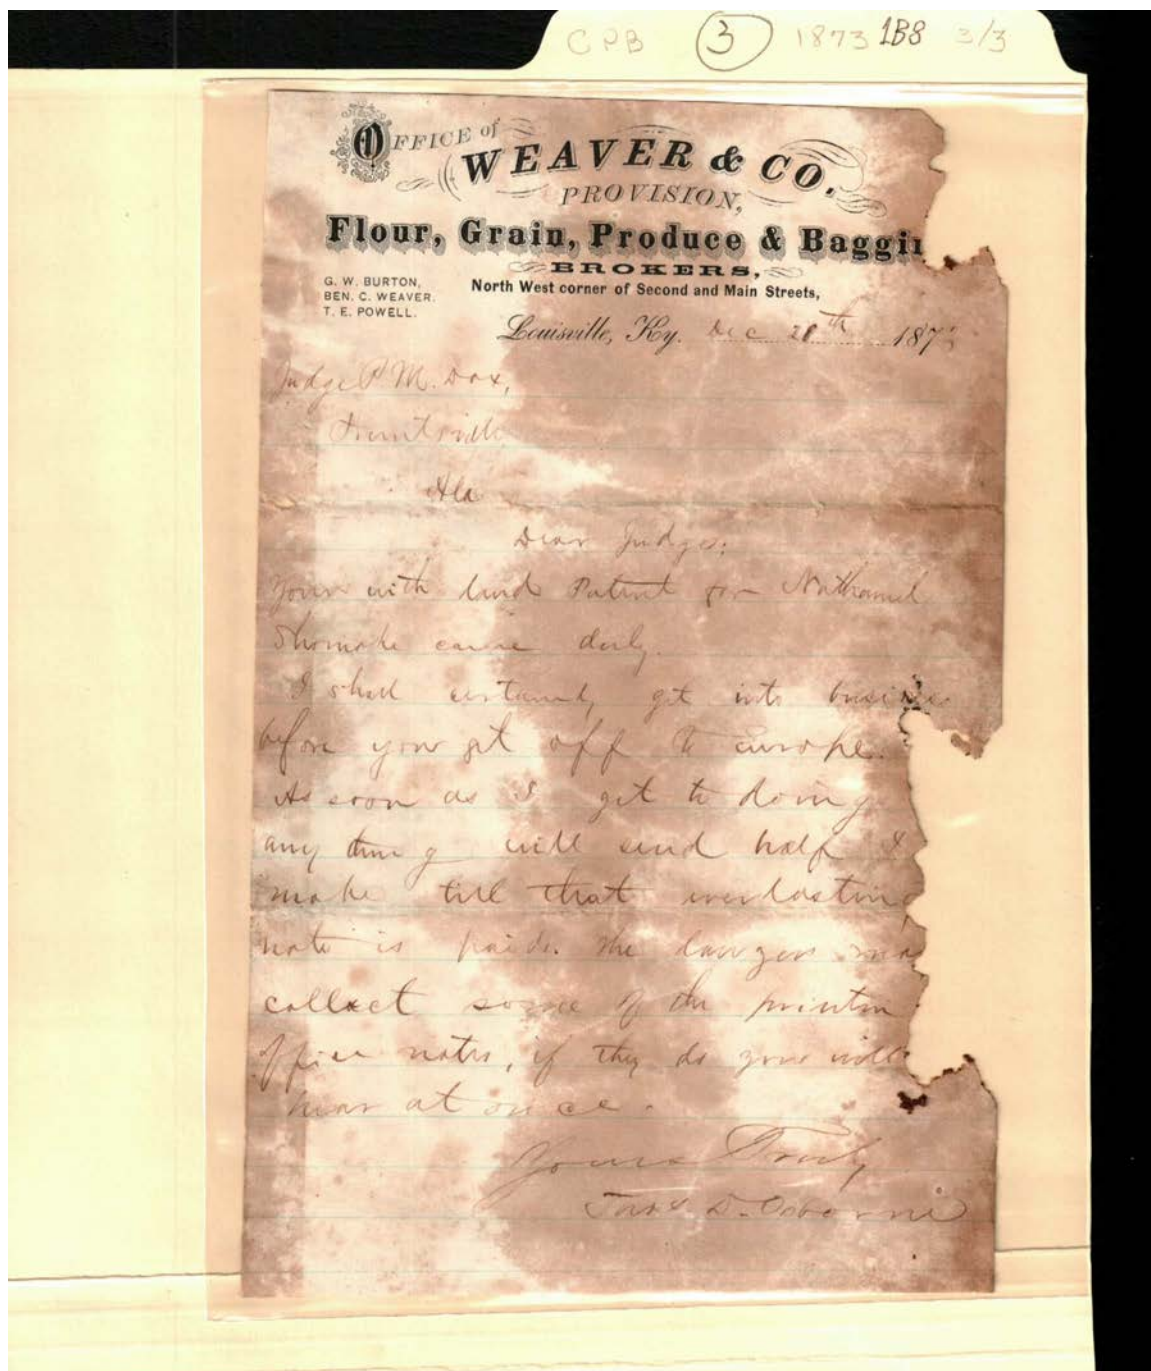 CPB 3 1873 1B8 3/3
OFFICE of
WEAVER & CO.
PROVISION,
Flour, Grain, Produce & Baggin
BROKERS,
G. W. BURTON,
BEN. C. WEAVER.
T. E. POWELL.
North West corner of Second and Main Streets,
Louisville, Ky. Dec 20th 1873
Judge P. M. Dox,
Huntsville
Ala
Dear Judge:
Yours with land Patent for Nathaniel
Shomake came duly.
I shall certainly get into busine
before you get off to Europe.
As soon as I get to doing
any thing will send half I
make till that everlasting
note is paid. The lawyers may
collect some of the printin
office notes, if they do you will
hear at once.
Yours Truly
D. Osborne